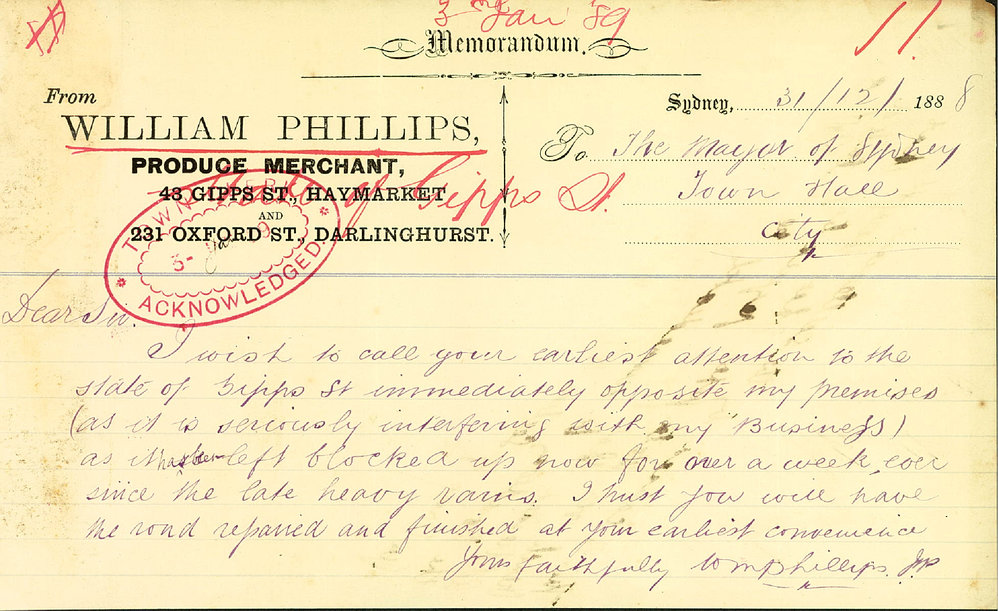 3rd Jan '89
11.
Memorandum.
From
WILLIAM PHILLIPS,
PRODUCE MERCHANT,
43 GIPPS ST., HAYMARKET
AND
231 OXFORD ST., DARLINGHURST.
State of Gipps St.
TOWN
3- Jan 9
ACKNOWLEDGED.
Sydney, 31/12/1888
To The Mayor of Sydney
Town Hall
City
Dear Sir.
I wish to call your earliest attention to the
state of Gipps St immediately opposite my premises
(as it is seriously interfering with my Business)
as it has been left blocked up now for over a week, ever
since the late heavy rains. I trust you will have
the road repaired and finished at your earliest convenience
Yours faithfully Wm Phillips.